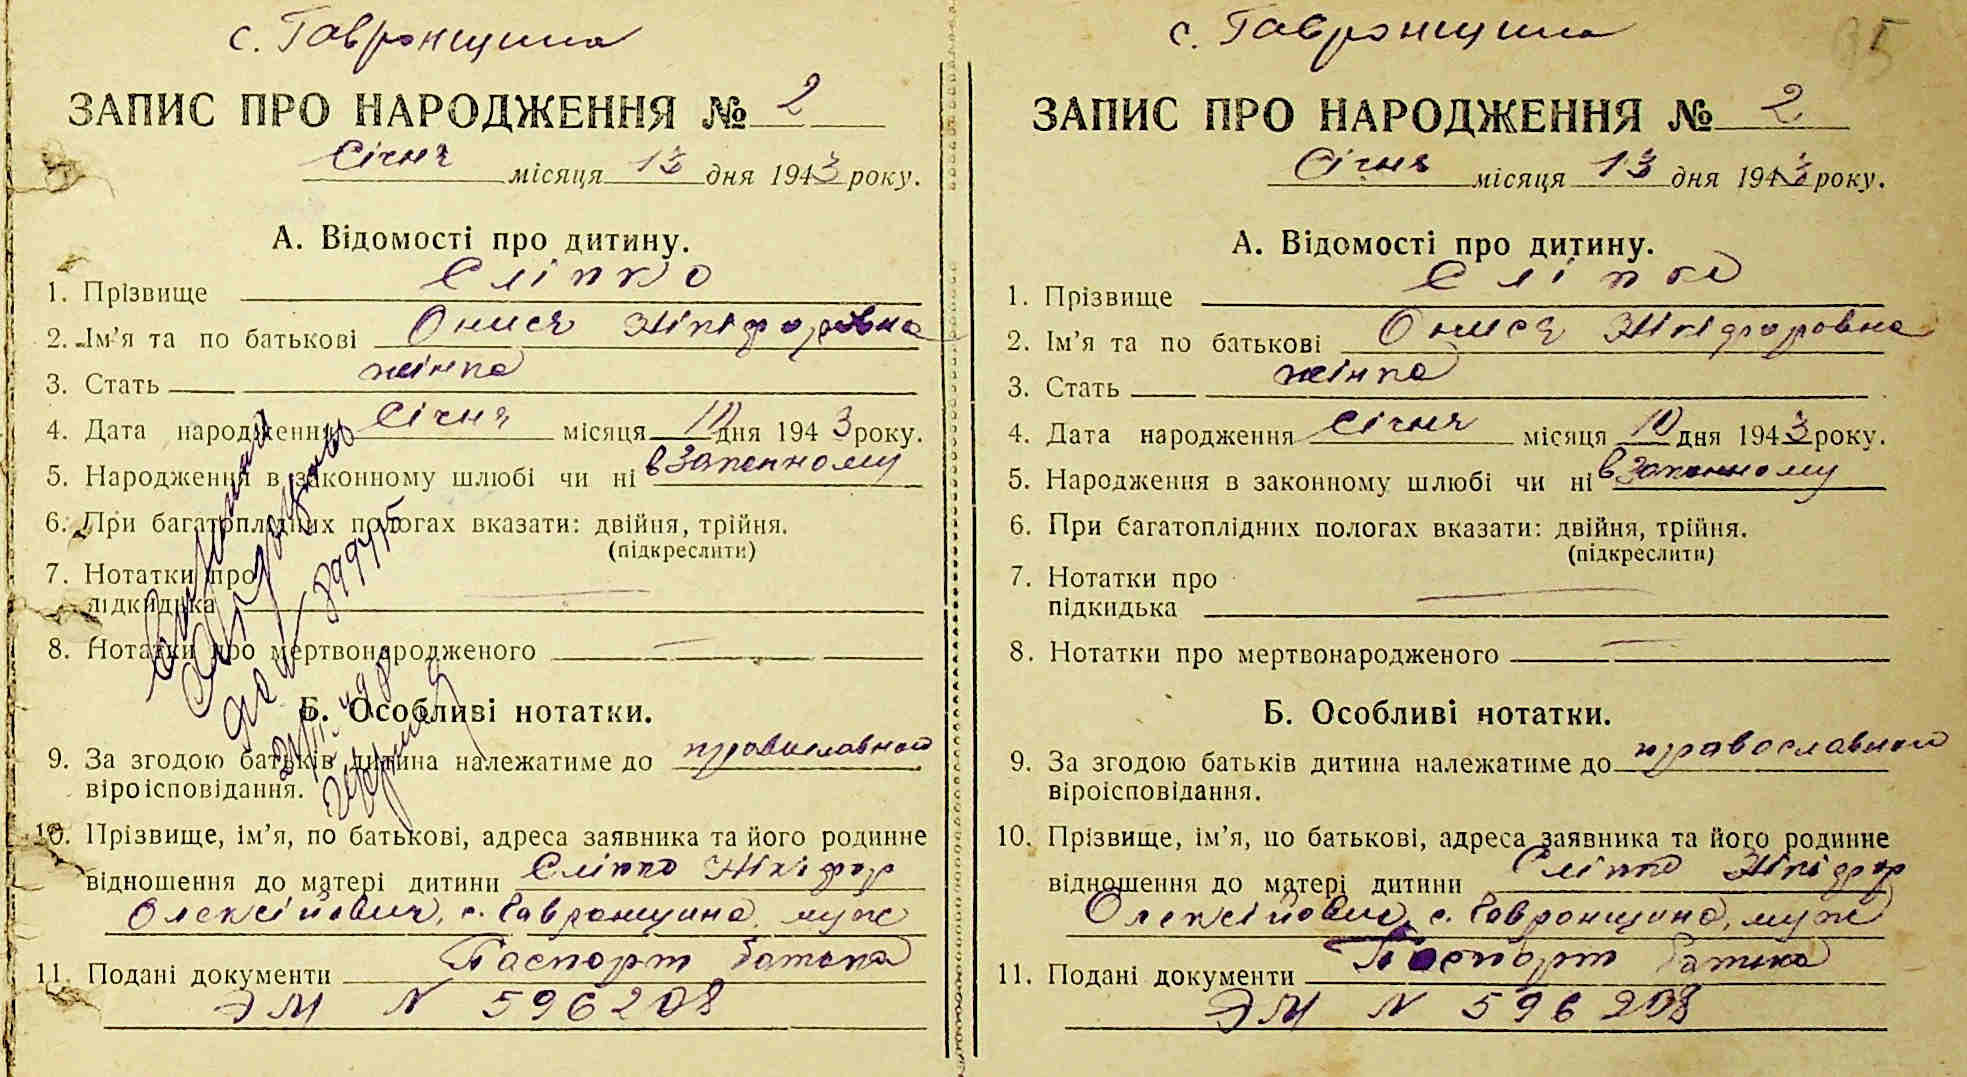 с. Гавронщина
ЗАПИС ПРО НАРОДЖЕННЯ № 2
Січня місяця 13 дня 1943 року.
А. Відомості про дитину.
1. Прізвище Сліпко
2. Ім’я та по батькові Онися Нікіфоровна
3. Стать жінка
4. Дата народження Січня місяця 10 дня 1943 року.
5. Народження в законному шлюбі чи ні в законному
6. При багатоплідних пологах вказати: двійня, трійня.
(підкреслити)
7. Нотатки про
підкидька
8. Нотатки про мертвонародженого
Б. Особливі нотатки.
9. За згодою батьків дитина належатиме до православного
віроісповідання.
10. Прізвище, ім’я, по батькові, адреса заявника та його родинне
відношення до матері дитини Сліпко Нікіфор
Олексійович, с. Гавронщина, муж
11. Подані документи Паспорт батька
ЭМ N 596208
с. Гавронщина
95
ЗАПИС ПРО НАРОДЖЕННЯ № 2
Січня місяця 13 дня 1943 року.
А. Відомості про дитину.
1. Прізвище Сліпко
2. Ім’я та по батькові Онися Нікіфоровна
3. Стать жінка
4. Дата народження Січня місяця 10 дня 1943 року.
5. Народження в законному шлюбі чи ні в законному
6. При багатоплідних пологах вказати: двійня, трійня.
(підкреслити)
7. Нотатки про
підкидька
8. Нотатки про мертвонародженого
Б. Особливі нотатки.
9. За згодою батьків дитина належатиме до православного
віроісповідання.
10. Прізвище, ім’я, по батькові, адреса заявника та його родинне
відношення до матері дитини Сліпко Нікіфор
Олексійович, с. Гавронщина, муж
11. Подані документи Паспорт батька
ЭМ N 596208